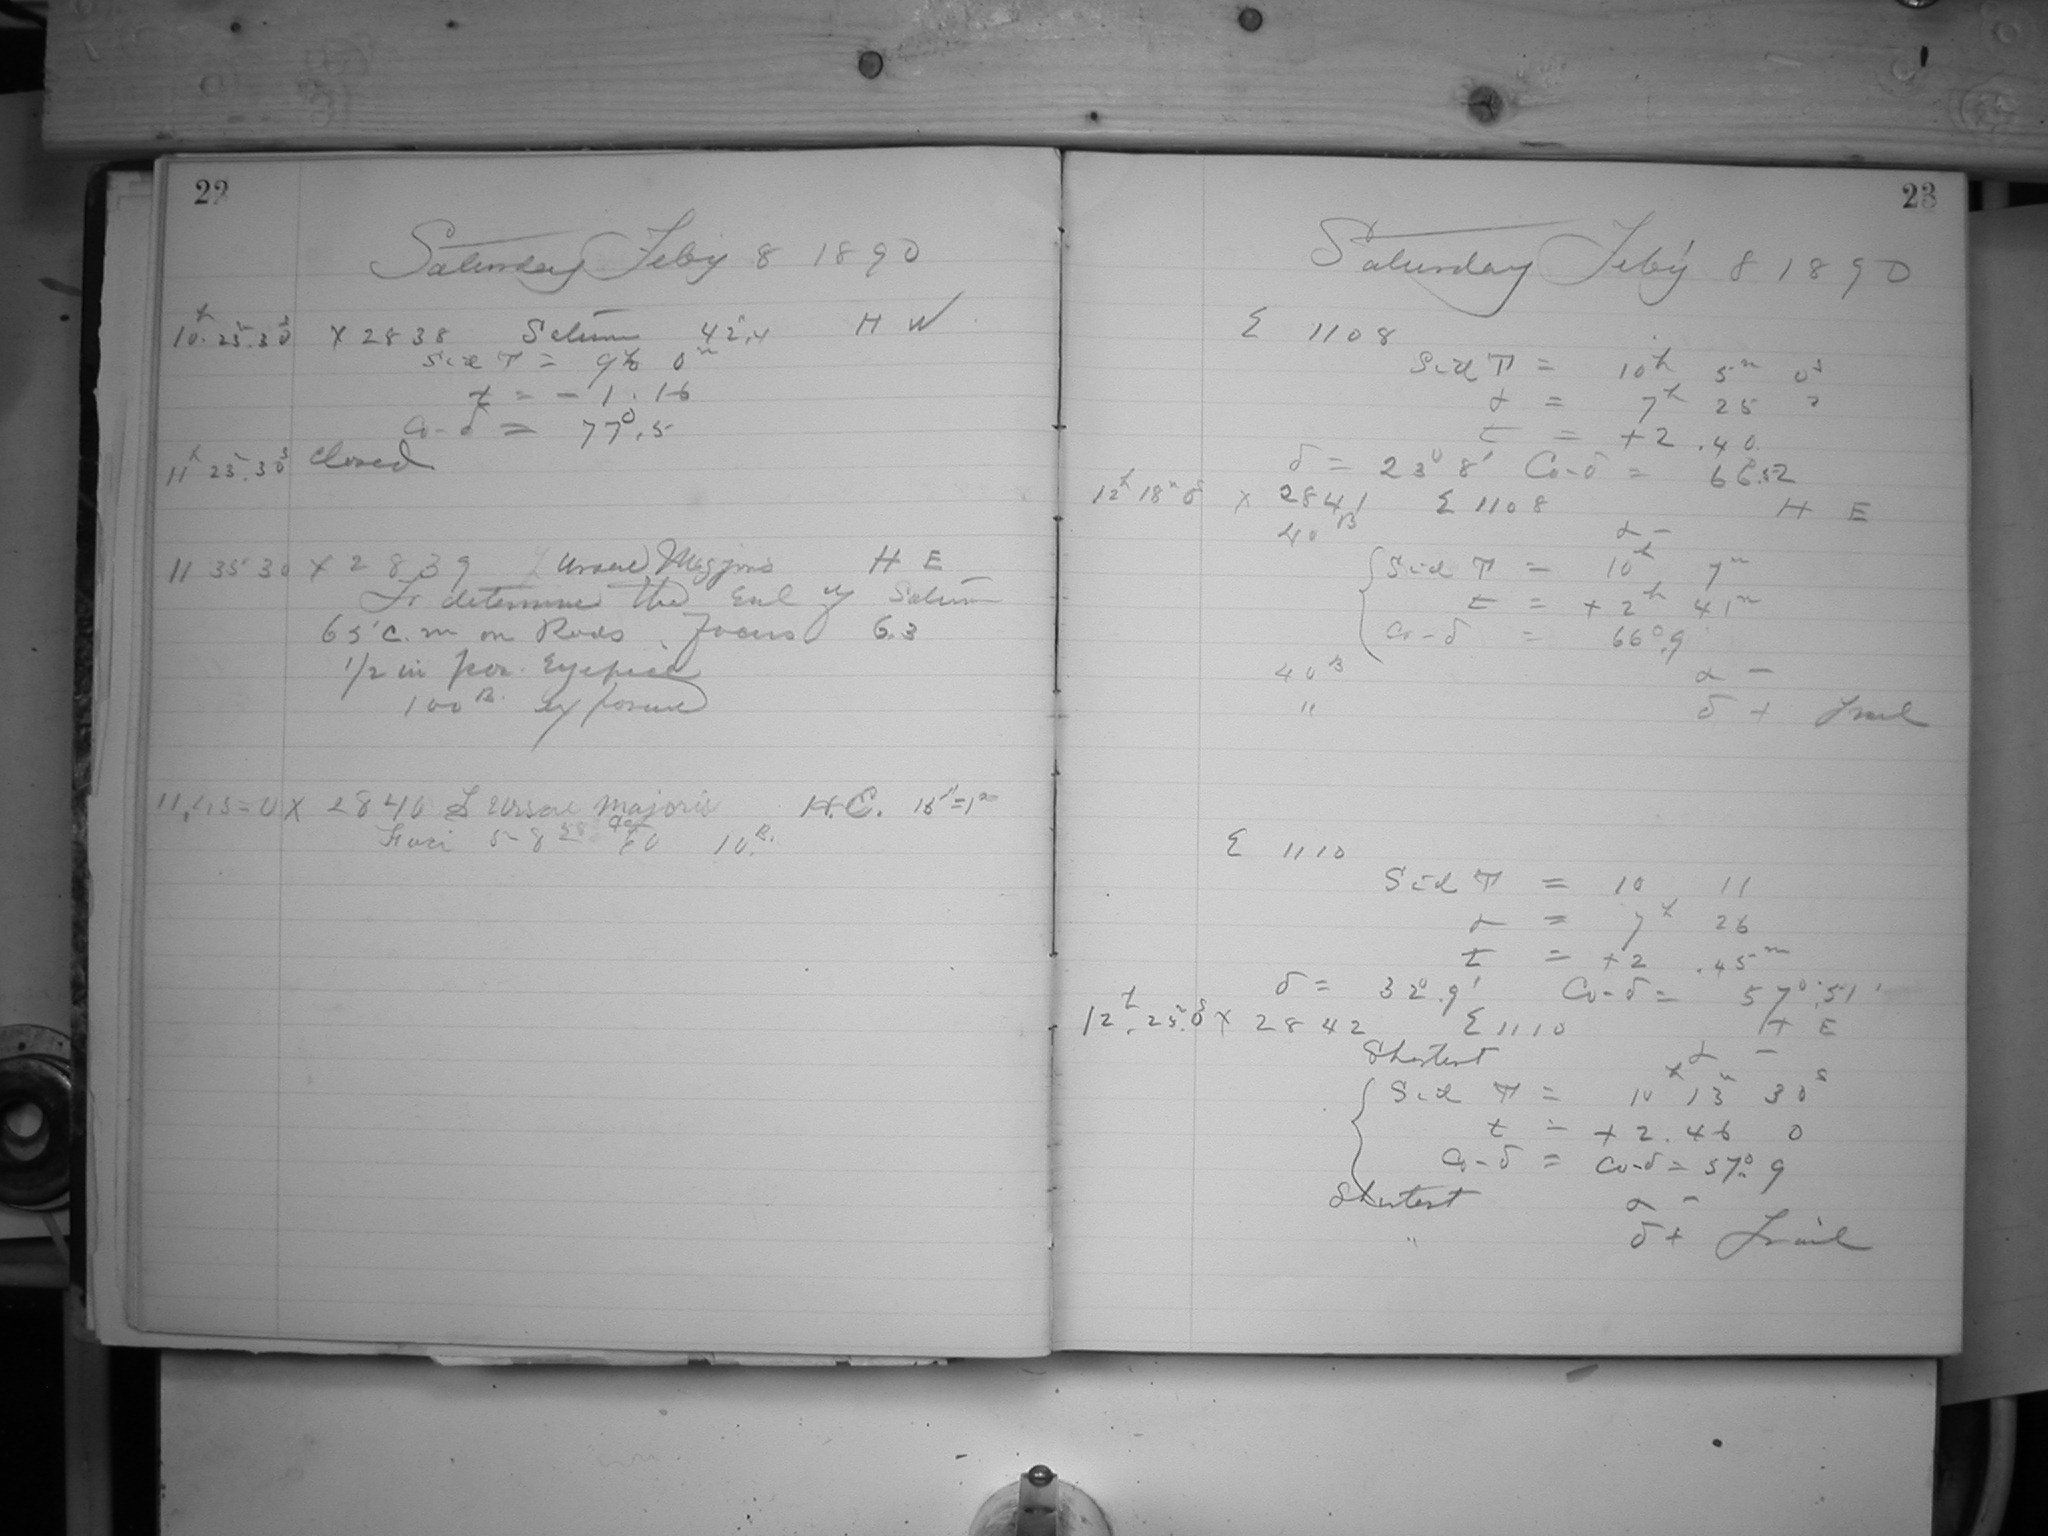 22
Saturday Feby 8 1890
10h 25m 30s × 2838 Saturn 42.4 H W
Sid T = 9h 0m
t = - 1.16
Co-δ = 77°.5
11h 25m 30s closed
11 35 30 × 2839 ζ Ursae Majoris H E
To determine the Eql of Saturn
65 c.m on Rods. focus 6.3
1/2 in pos. Eyepiece
100 B. exposure
× 2840 ζ Ursae Majoris H.E. 15"=1m
Foci 5-8 10 B.
23
Saturday Feby 8 1890
Σ 1108
Sid T = 10h 5m 0s
α = 7h 25
t = +2.40
δ = 23° 8' Co-δ = 66.52
12h 18m 0s × 2841 Σ 1108 H E
40 B α -
Sid T = 10h 7m
t = +2h 41m
Co-δ = 66°.9
40 B α -
" δ + Trail
Σ 1110
Sid T = 10 11
α = 7h 26
t = +2.45m
δ = 32°.9' Co-δ = 57°.51'
12h 25m 0s × 2842 Σ 1110 H E
Shortest α -
Sid T = 10h 13m 30s
t = +2.46 0
Co-δ = Co-δ = 57°.9
Shortest α -
" δ + Trail